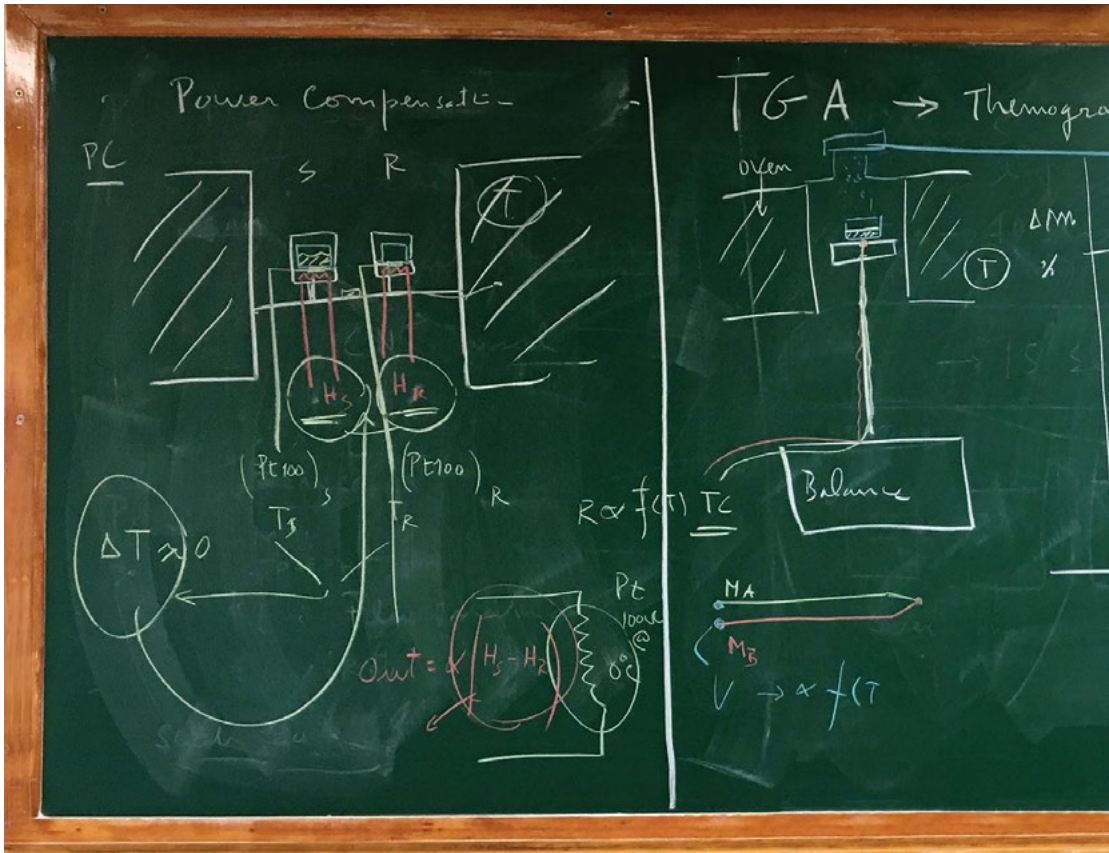 Power Compensat
PC
S R
T
H_S H_R
(Pt100)_S (Pt100)_R
T_S T_R
ΔT ≈ 0
Out = α |H_S - H_R|
Pt
100Ω
@
0°C
TGA → Themogra
oven
T
Δm
%
→ 15
Balance
R α f(T) TC
M_A
M_B
V → α f(T